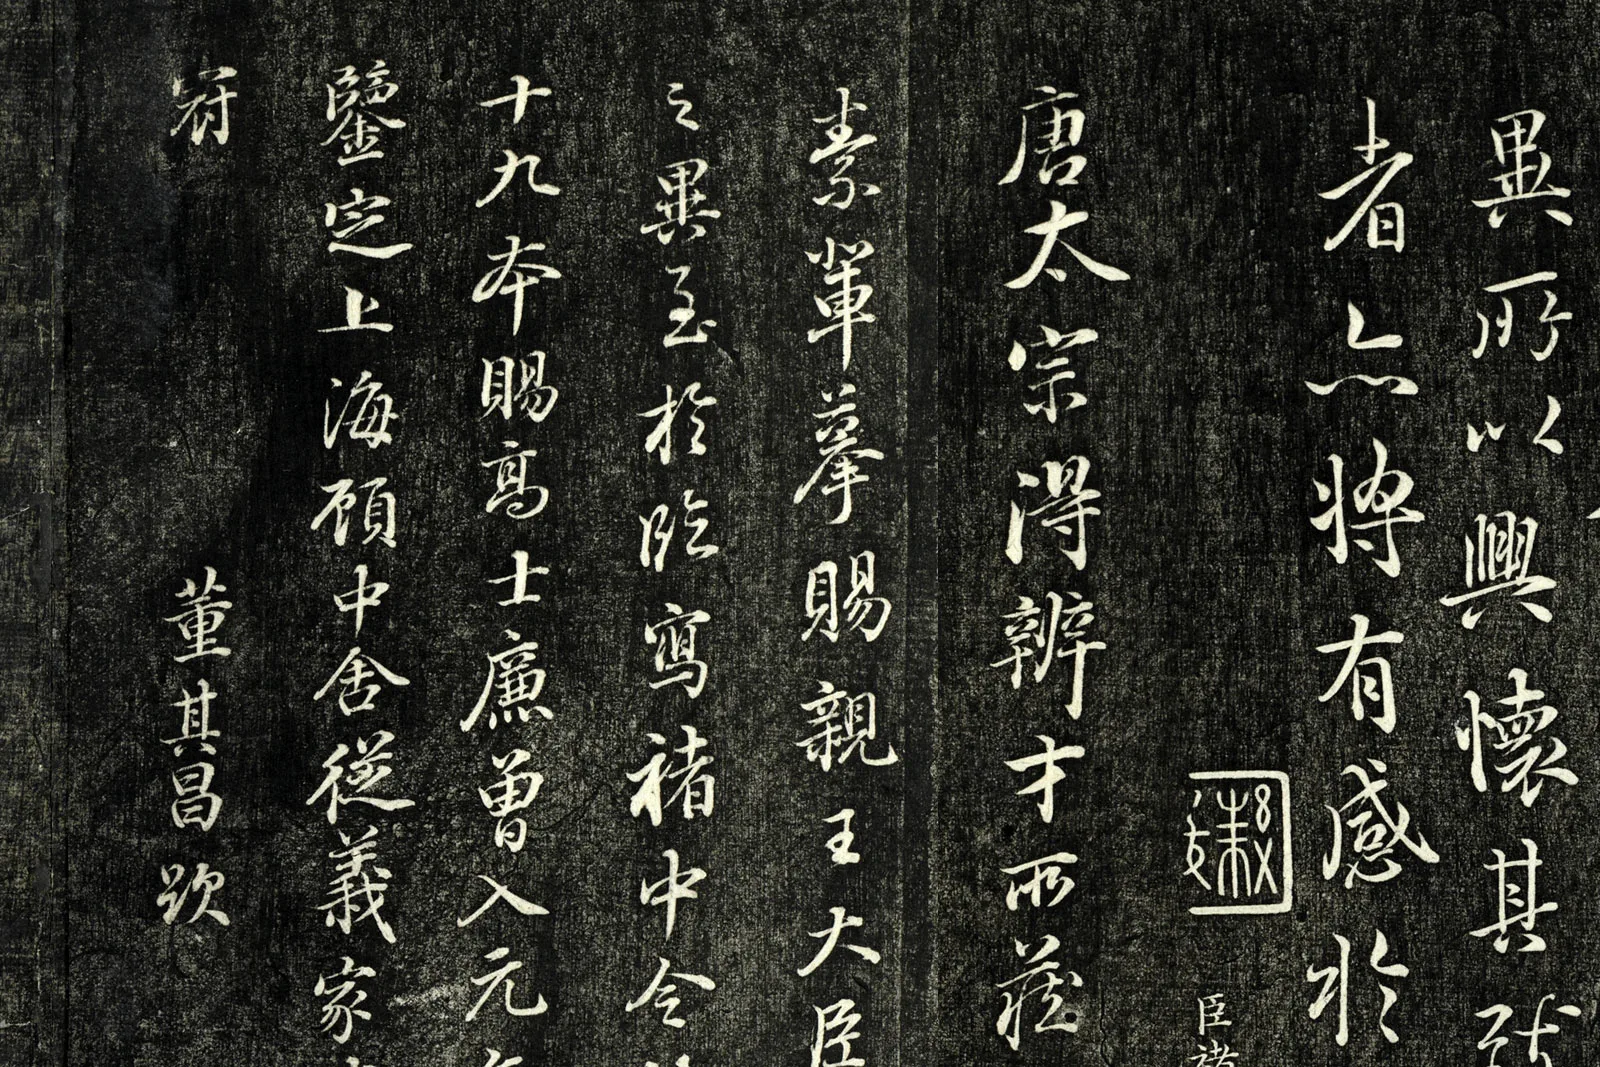 異所以興懷其
者亦將有感於
臣褚
唐太宗得辨才所藏
素輩摹賜親王大臣
之異至於臨寫褚中令
十九本賜高士廉曾入元
鑒定上海顧中舍從義家
符
董其昌跋